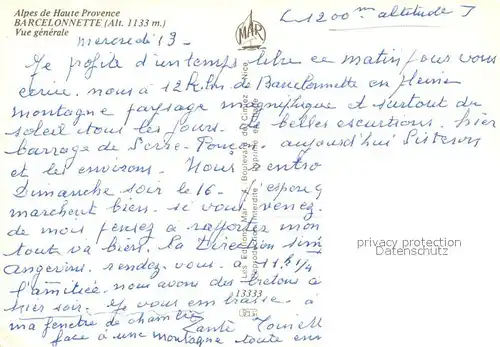 Alpes de Haute Provence
BARCELONNETTE (Alt. 1133 m.)
Vue générale
(1200m altitude)
mercredi 13 -
Je profite d'un temps libre ce matin pour vous
écrire. nous à 12 klm de Barcelonnette en pleine
montagne paysage magnifique et surtout du
soleil tous les jours. de belles escurtions. hier
barrage de Serre-Ponçon. aujourd'hui Sisteron
et les environs. Nous
Dimanche soir le 16 -
marchent bien. si vous venez
de mois pensez à rapporter mon
tout va bien. La Direction
Angevins. rendez vous. à 11h 1/4
l'amitiée. nous avons des bretons à
hier soir. Je vous embrasse. à
ma fenetre de chambre
Tante
face à une montagne toute en
MAR
Les Editions Mar - 4, Boulevard de Cimiez - Nice
Reproduction interdite - Imprimé en
13333
privacy protection
Datenschutz